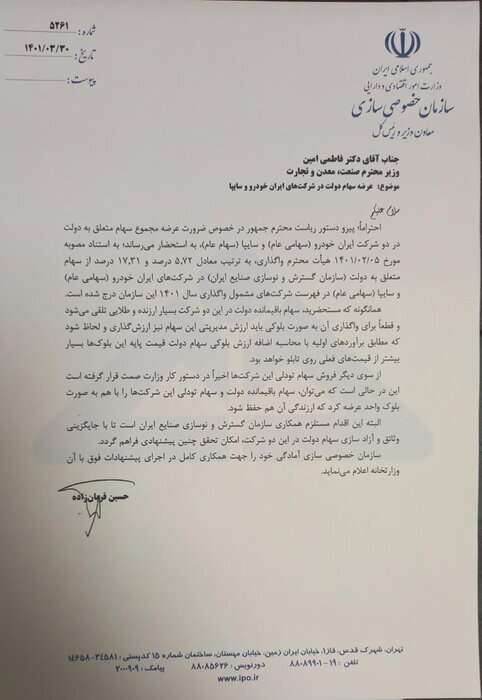 شماره: ۵۲۶۱
تاریخ: ۱۴۰۱/۰۳/۳۰
پیوست:
جمهوری اسلامی ایران
وزارت امور اقتصادی و دارایی
سازمان خصوصی سازی
معاون وزیر و رئیس کل
جناب آقای دکتر فاطمی امین
وزیر محترم صنعت، معدن و تجارت
موضوع: عرضه سهام دولت در شرکت‌های ایران خودرو و سایپا
سلام علیکم
احتراماً؛ پیرو دستور ریاست محترم جمهور در خصوص ضرورت عرضه مجموع سهام متعلق به دولت
در دو شرکت ایران خودرو (سهامی عام) و سایپا (سهام عام)، به استحضار می‌رساند؛ به استناد مصوبه
مورخ ۱۴۰۱/۰۲/۰۵ هیأت محترم واگذاری، به ترتیب معادل ۵,۷۲ درصد و ۱۷,۳۱ درصد از سهام
متعلق به دولت (سازمان گسترش و نوسازی صنایع ایران) در شرکت‌های ایران خودرو (سهامی عام)
و سایپا (سهامی عام) در فهرست شرکت‌های مشمول واگذاری سال ۱۴۰۱ این سازمان درج شده است.
همانگونه که مستحضرید، سهام باقیمانده دولت در این دو شرکت بسیار ارزنده و طلایی تلقی می‌شود
و قطعاً برای واگذاری آن به صورت بلوکی باید ارزش مدیریتی این سهام نیز ارزش‌گذاری و لحاظ شود
که مطابق برآوردهای اولیه با محاسبه اضافه ارزش بلوکی سهام دولت قیمت پایه این بلوک‌ها بسیار
بیشتر از قیمت‌های فعلی روی تابلو خواهد بود.
از سوی دیگر فروش سهام تودلی این شرکت‌ها اخیراً در دستور کار وزارت صمت قرار گرفته است
این در حالی است که می‌توان، سهام باقیمانده دولت و سهام تودلی این شرکت‌ها را با هم به صورت
بلوک واحد عرضه کرد که ارزندگی آن هم حفظ شود.
البته این اقدام مستلزم همکاری سازمان گسترش و نوسازی صنایع ایران است تا با جایگزینی
وثائق و آزاد سازی سهام دولت در این دو شرکت، امکان تحقق چنین پیشنهادی فراهم گردد.
سازمان خصوصی سازی آمادگی خود را جهت همکاری کامل در اجرای پیشنهادات فوق با آن
وزارتخانه اعلام می‌نماید.
حسین قربان‌زاده
تهران، شهرک قدس، فاز۱، خیابان ایران زمین، خیابان مهستان، ساختمان شماره ۱۵ کدپستی: ۳۴۵۸۱-۱۴۶۵۸
تلفن: ۱۹-۸۸۰۸۹۹۰۱ دورنویس: ۸۸۰۸۵۶۲۶ پیامک: ۲۰۰۰۹۰۹
www.ipo.ir